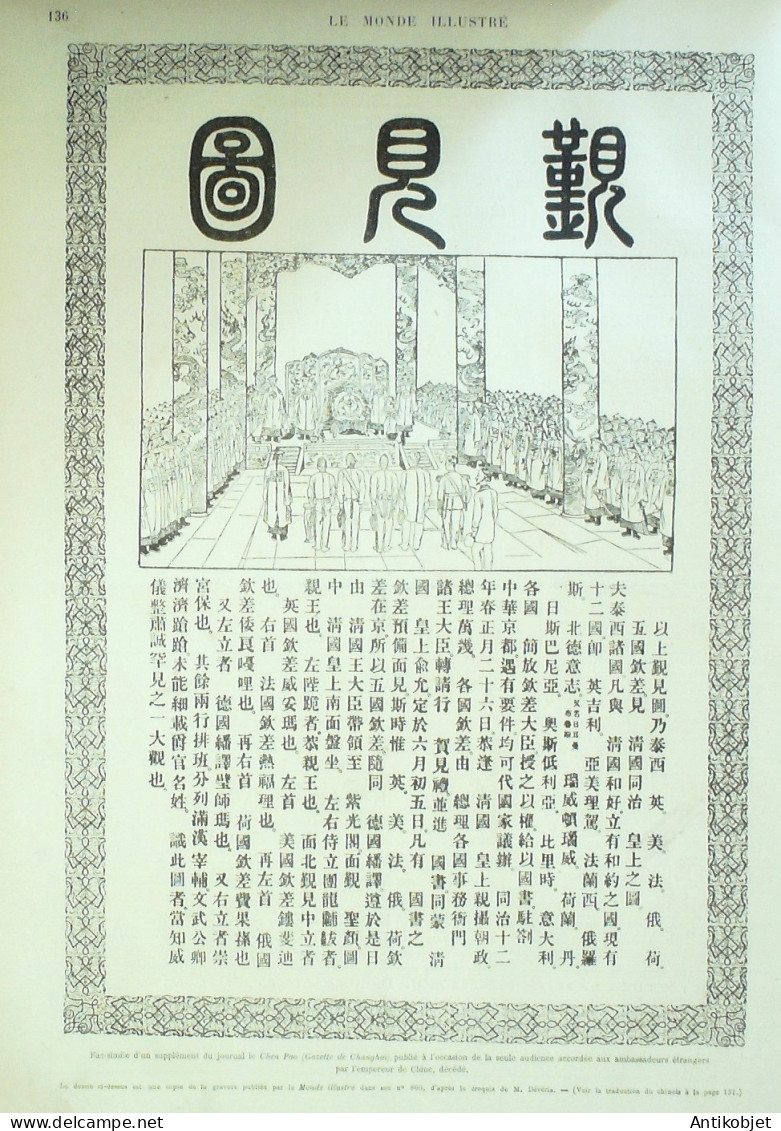 136
LE MONDE ILLUSTRÉ
覲見圖
以上覲見圖乃泰西 英 美 法 俄 荷
五國欽差見 清國同治 皇上之圖
夫泰西諸國凡與 清國和好立有和約之國現有
十二國卽 英吉利 亞美理駕 法蘭西 俄羅
斯 北德意志 又名日耳曼布魯斯 瑞威頓瑙威 荷蘭 丹
日斯巴尼亞 奧斯低利亞 比里時 意大利
各國 簡放欽差大臣授之以權給以國書駐劄
中華京都遇有要件均可代國家議辦 同治十二
年春正月二十六日恭逢 清國 皇上親攝朝政
總理萬幾 各國欽差由 總理各國事務衙門
諸王大臣轉請行 賀見禮並進 國書同蒙 清
國 皇上俞允定於六月初五日凡有 國書之
欽差預備面見斯時惟 英 美 法 俄 荷欽
差在京所以五國欽差隨同 德國繙譯遵於是日
由 清國王大臣帶領至 紫光閣面覲 聖顏圖
中 清國皇上南面盤坐 左右侍立團龍黼黻者
親王也 左陛跪者恭親王也 面北覲見中立者
英國欽差威妥瑪也 左首 美國欽差鏤斐迪
也 右首 法國欽差熱福理也 再左首 俄國
欽差倭良嘎哩也 再右首 荷國欽差費果蓀也
又左立者 德國繙譯璧師瑪也 又右立者崇
宮保也 其餘兩行排班分列滿漢宰輔文武公卿
濟濟蹌蹌未能細載爵官名姓 識此圖者當知威
儀整肅誠罕見之一大觀也
Fac-similé d'un supplément du journal le Chen Pao (Gazette de Changhai) publié à l'occasion de la seule audience accordée aux ambassadeurs étrangers
par l'empereur de Chine, décédé.
Le dessin ci-dessus est une copie de la gravure publiée par le Monde illustré dans son nº 860, d'après le croquis de M. Dévéria. — (Voir la traduction du chinois à la page 131.)
Antikobjet